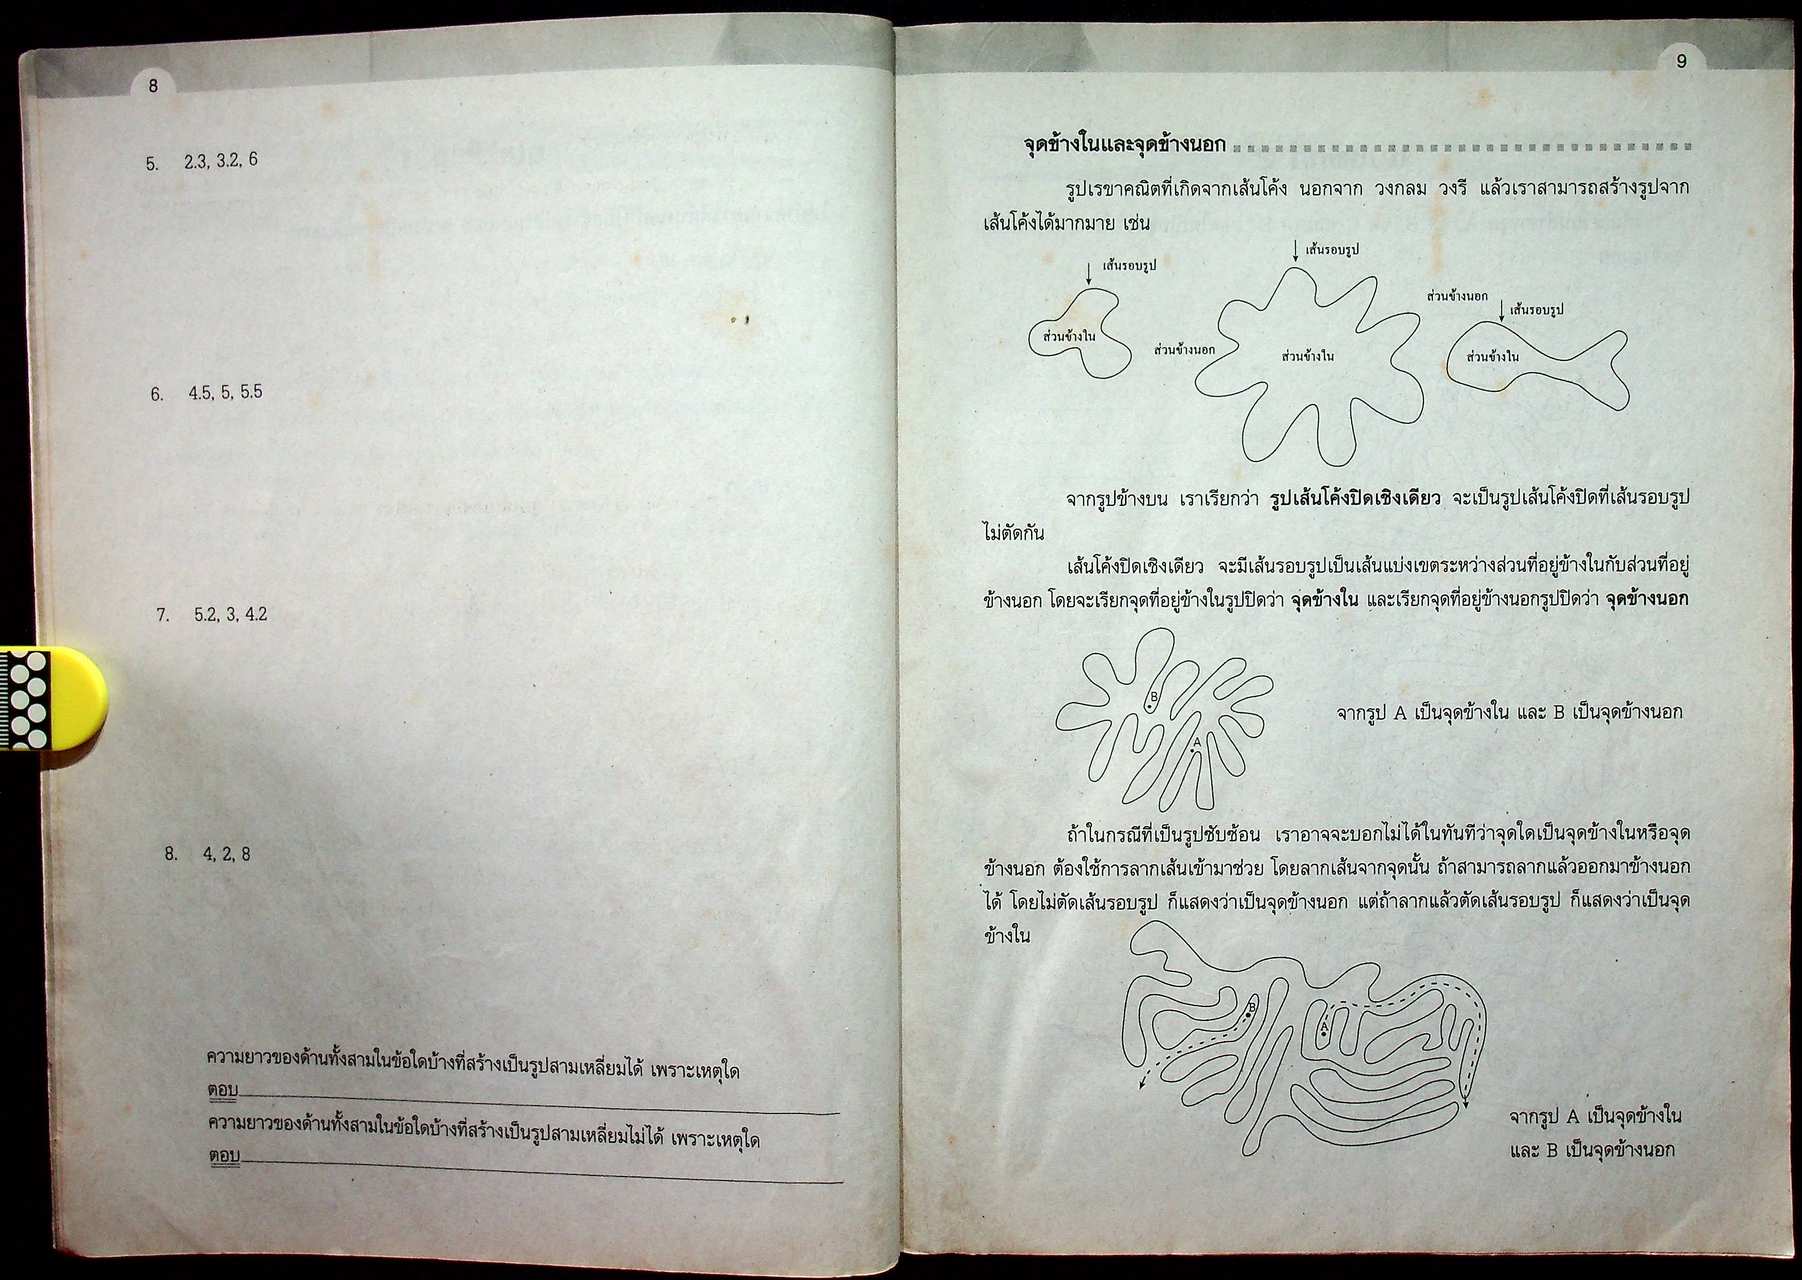 8
5. 2.3, 3.2, 6
6. 4.5, 5, 5.5
7. 5.2, 3, 4.2
8. 4, 2, 8
ความยาวของด้านทั้งสามในข้อใดบ้างที่สร้างเป็นรูปสามเหลี่ยมได้ เพราะเหตุใด
ตอบ
ความยาวของด้านทั้งสามในข้อใดบ้างที่สร้างเป็นรูปสามเหลี่ยมไม่ได้ เพราะเหตุใด
ตอบ
9
จุดข้างในและจุดข้างนอก
รูปเรขาคณิตที่เกิดจากเส้นโค้ง นอกจาก วงกลม วงรี แล้วเราสามารถสร้างรูปจาก
เส้นโค้งได้มากมาย เช่น
เส้นรอบรูป
ส่วนข้างใน
เส้นรอบรูป
ส่วนข้างนอก
ส่วนข้างใน
ส่วนข้างนอก
เส้นรอบรูป
ส่วนข้างใน
จากรูปข้างบน เราเรียกว่า รูปเส้นโค้งปิดเชิงเดียว จะเป็นรูปเส้นโค้งปิดที่เส้นรอบรูป
ไม่ตัดกัน
เส้นโค้งปิดเชิงเดียว จะมีเส้นรอบรูปเป็นเส้นแบ่งเขตระหว่างส่วนที่อยู่ข้างในกับส่วนที่อยู่
ข้างนอก โดยจะเรียกจุดที่อยู่ข้างในรูปปิดว่า จุดข้างใน และเรียกจุดที่อยู่ข้างนอกรูปปิดว่า จุดข้างนอก
B
A
จากรูป A เป็นจุดข้างใน และ B เป็นจุดข้างนอก
ถ้าในกรณีที่เป็นรูปซับซ้อน เราอาจจะบอกไม่ได้ในทันทีว่าจุดใดเป็นจุดข้างในหรือจุด
ข้างนอก ต้องใช้การลากเส้นเข้ามาช่วย โดยลากเส้นจากจุดนั้น ถ้าสามารถลากแล้วออกมาข้างนอก
ได้ โดยไม่ตัดเส้นรอบรูป ก็แสดงว่าเป็นจุดข้างนอก แต่ถ้าลากแล้วตัดเส้นรอบรูป ก็แสดงว่าเป็นจุด
ข้างใน
B
A
จากรูป A เป็นจุดข้างใน
และ B เป็นจุดข้างนอก